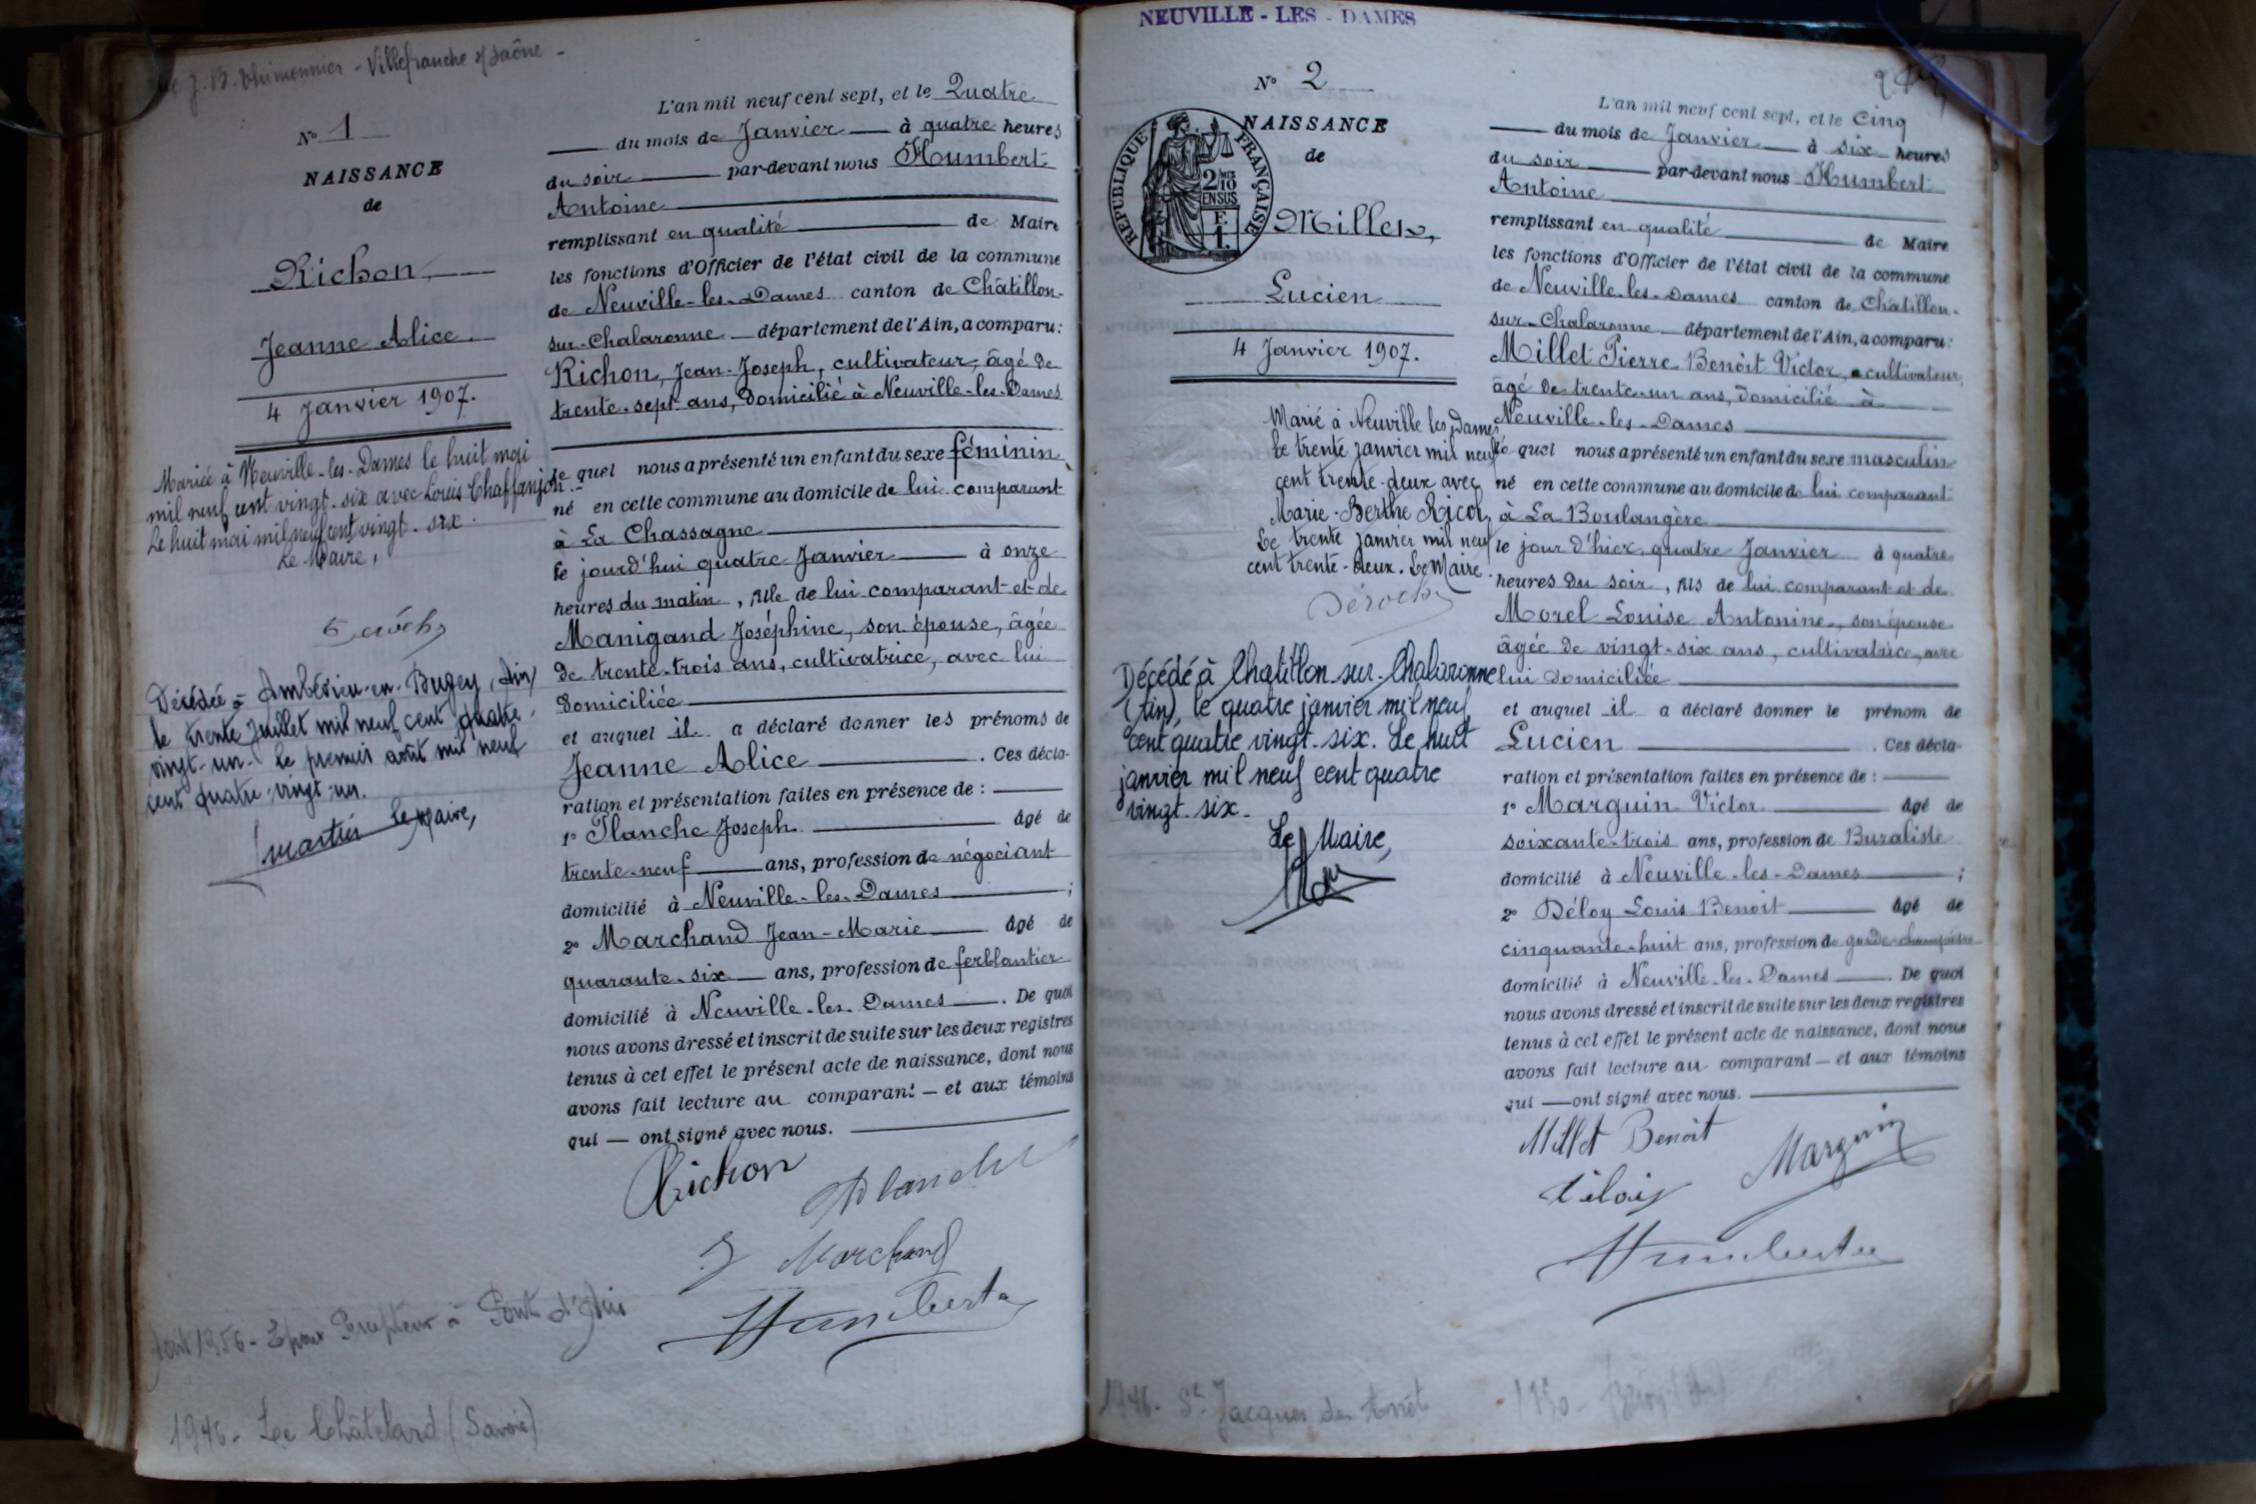 J. B. - Villefranche s/ Saône -
N° 1
NAISSANCE
de
Richon
Jeanne Alice
4 Janvier 1907.
Mariée à Neuville-les-Dames le huit mai
mil neuf cent vingt-six avec Louis Chaffanjon.
Le huit mai mil neuf cent vingt-six.
Le Maire,
Décédée à Ambérieu-en-Bugey (Ain)
le trente Juillet mil neuf cent quatre
vingt-un. Le premier août mil neuf
cent quatre-vingt-un.
Le Maire,
L'an mil neuf cent sept, et le Quatre
du mois de Janvier à quatre heures
du soir par-devant nous Humbert
Antoine
remplissant en qualité de Maire
les fonctions d'Officier de l'état civil de la commune
de Neuville-les-Dames canton de Châtillon-
sur-Chalaronne département de l'Ain, a comparu:
Richon, Jean-Joseph, cultivateur, âgé de
trente-sept ans, domicilié à Neuville-les-Dames
le quel nous a présenté un enfant du sexe féminin
né en cette commune au domicile de lui comparant
à La Chassagne
le jourd'hui quatre Janvier à onze
heures du matin, fille de lui comparant et de
Manigand Joséphine, son épouse, âgée
de trente-trois ans, cultivatrice, avec lui
domiciliée
et auquel il a déclaré donner les prénoms de
Jeanne Alice. Ces décla-
ration et présentation faites en présence de :
1° Planche Joseph âgé de
trente-neuf ans, profession de négociant
domicilié à Neuville-les-Dames ;
2° Marchand Jean-Marie âgé de
quarante-six ans, profession de ferblantier
domicilié à Neuville-les-Dames. De quoi
nous avons dressé et inscrit de suite sur les deux registres
tenus à cet effet le présent acte de naissance, dont nous
avons fait lecture au comparant — et aux témoins
qui — ont signé avec nous.
Richon
Planche
J Marchand
Humbert a
1956 - à Pont d'Ain
1945 - Le Châtelard (Savoie)
NEUVILLE - LES - DAMES
N° 2
NAISSANCE
de
RÉPUBLIQUE FRANÇAISE
2/10
EN SUS
F.
1.
Millet,
Lucien
4 Janvier 1907.
Marié à Neuville les Dames
le trente janvier mil neuf
cent trente-deux avec
Marie-Berthe Ricol
Le trente janvier mil neuf
cent trente-deux. Le Maire.
Décédé à Chatillon-sur-Chalaronne
(Ain), le quatre janvier mil neuf
cent quatre vingt-six. Le huit
janvier mil neuf cent quatre
vingt-six.
Le Maire,
L'an mil neuf cent sept, et le Cinq
du mois de Janvier à six heures
du soir par-devant nous Humbert
Antoine
remplissant en qualité de Maire
les fonctions d'Officier de l'état civil de la commune
de Neuville-les-Dames canton de Châtillon-
sur-Chalaronne département de l'Ain, a comparu:
Millet Pierre Benoit Victor, cultivateur,
âgé de trente-un ans, domicilié à
Neuville-les-Dames
le quel nous a présenté un enfant du sexe masculin
né en cette commune au domicile de lui comparant
à La Boulangère
le jour d'hier, quatre Janvier à quatre
heures du soir, fils de lui comparant et de
Morel Louise Antonine, son épouse
âgée de vingt-six ans, cultivatrice, avec
lui domiciliée
et auquel il a déclaré donner le prénom de
Lucien. Ces décla-
ration et présentation faites en présence de :
1° Marguin Victor âgé de
soixante-trois ans, profession de Buraliste
domicilié à Neuville-les-Dames ;
2° Déloy Louis Benoit âgé de
cinquante-huit ans, profession de garde-champêtre
domicilié à Neuville-les-Dames. De quoi
nous avons dressé et inscrit de suite sur les deux registres
tenus à cet effet le présent acte de naissance, dont nous
avons fait lecture au comparant — et aux témoins
qui — ont signé avec nous.
Millet Benoit
Marguin
Humbert a
1946 - St Jacques des Arrêt